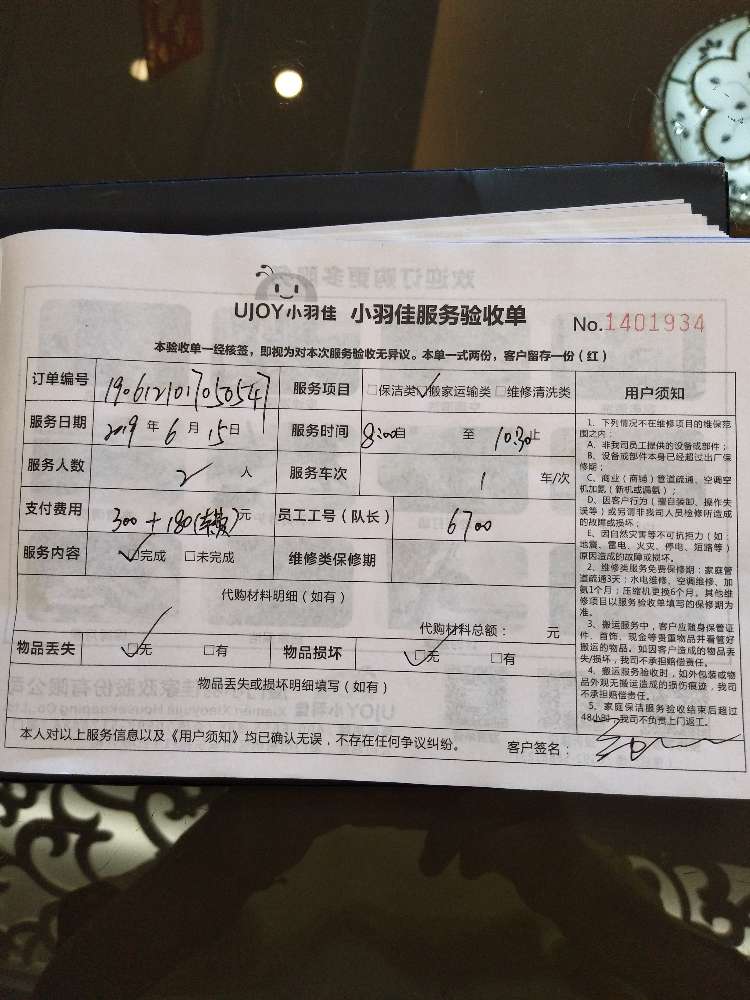 UJOY小羽佳 小羽佳服务验收单 No.1401934
本验收单一经核签，即视为对本次服务验收无异议。本单一式两份，客户留存一份（红）
订单编号 190612101705054 服务项目 □保洁类 ☑搬家运输类 □维修清洗类
服务日期 2019 年 6 月 15 日 服务时间 8:00 自 至 10:30 止
服务人数 2 人 服务车次 1 车/次
支付费用 300+180( )元 员工工号（队长） 6700
服务内容 ☑完成 □未完成 维修类保修期
代购材料明细（如有）
代购材料总额： 元
物品丢失 ☑无 □有 物品损坏 ☑无 □有
物品丢失或损坏明细填写（如有）
本人对以上服务信息以及《用户须知》均已确认无误，不存在任何争议纠纷。 客户签名：
用户须知
1、下列情况不在维修项目的维保范
围之内：
A、非我司员工提供的设备或部件；
B、设备或部件本身已经超过出厂保
修期；
C、商业（商铺）管道疏通、空调空
机加氨（新机或漏氨）；
D、因客户行为（擅自装卸、操作失
误等）或另请非我司人员检修所造成
的故障或损坏；
E、因自然灾害等不可抗拒力（如：
地震、雷电、火灾、停电、短路等）
原因造成的故障或损坏。
2、维修类服务免费保修期：家庭管
道疏通3天；水电维修、空调维修、加
氨1个月；压缩机更换6个月。其他维
修项目以服务验收单填写的保修期为
准。
3、搬运服务中，客户应随身保管证
件、首饰、现金等贵重物品并看管好
搬运的物品。如因客户造成的物品丢
失/损坏，我司不承担赔偿责任。
4、搬运服务验收时，如外包装或物
品外观无搬运造成的损伤痕迹，我司
不承担赔偿责任。
5、家庭保洁服务验收结束后超过
48小时，我司不负责上门返工。